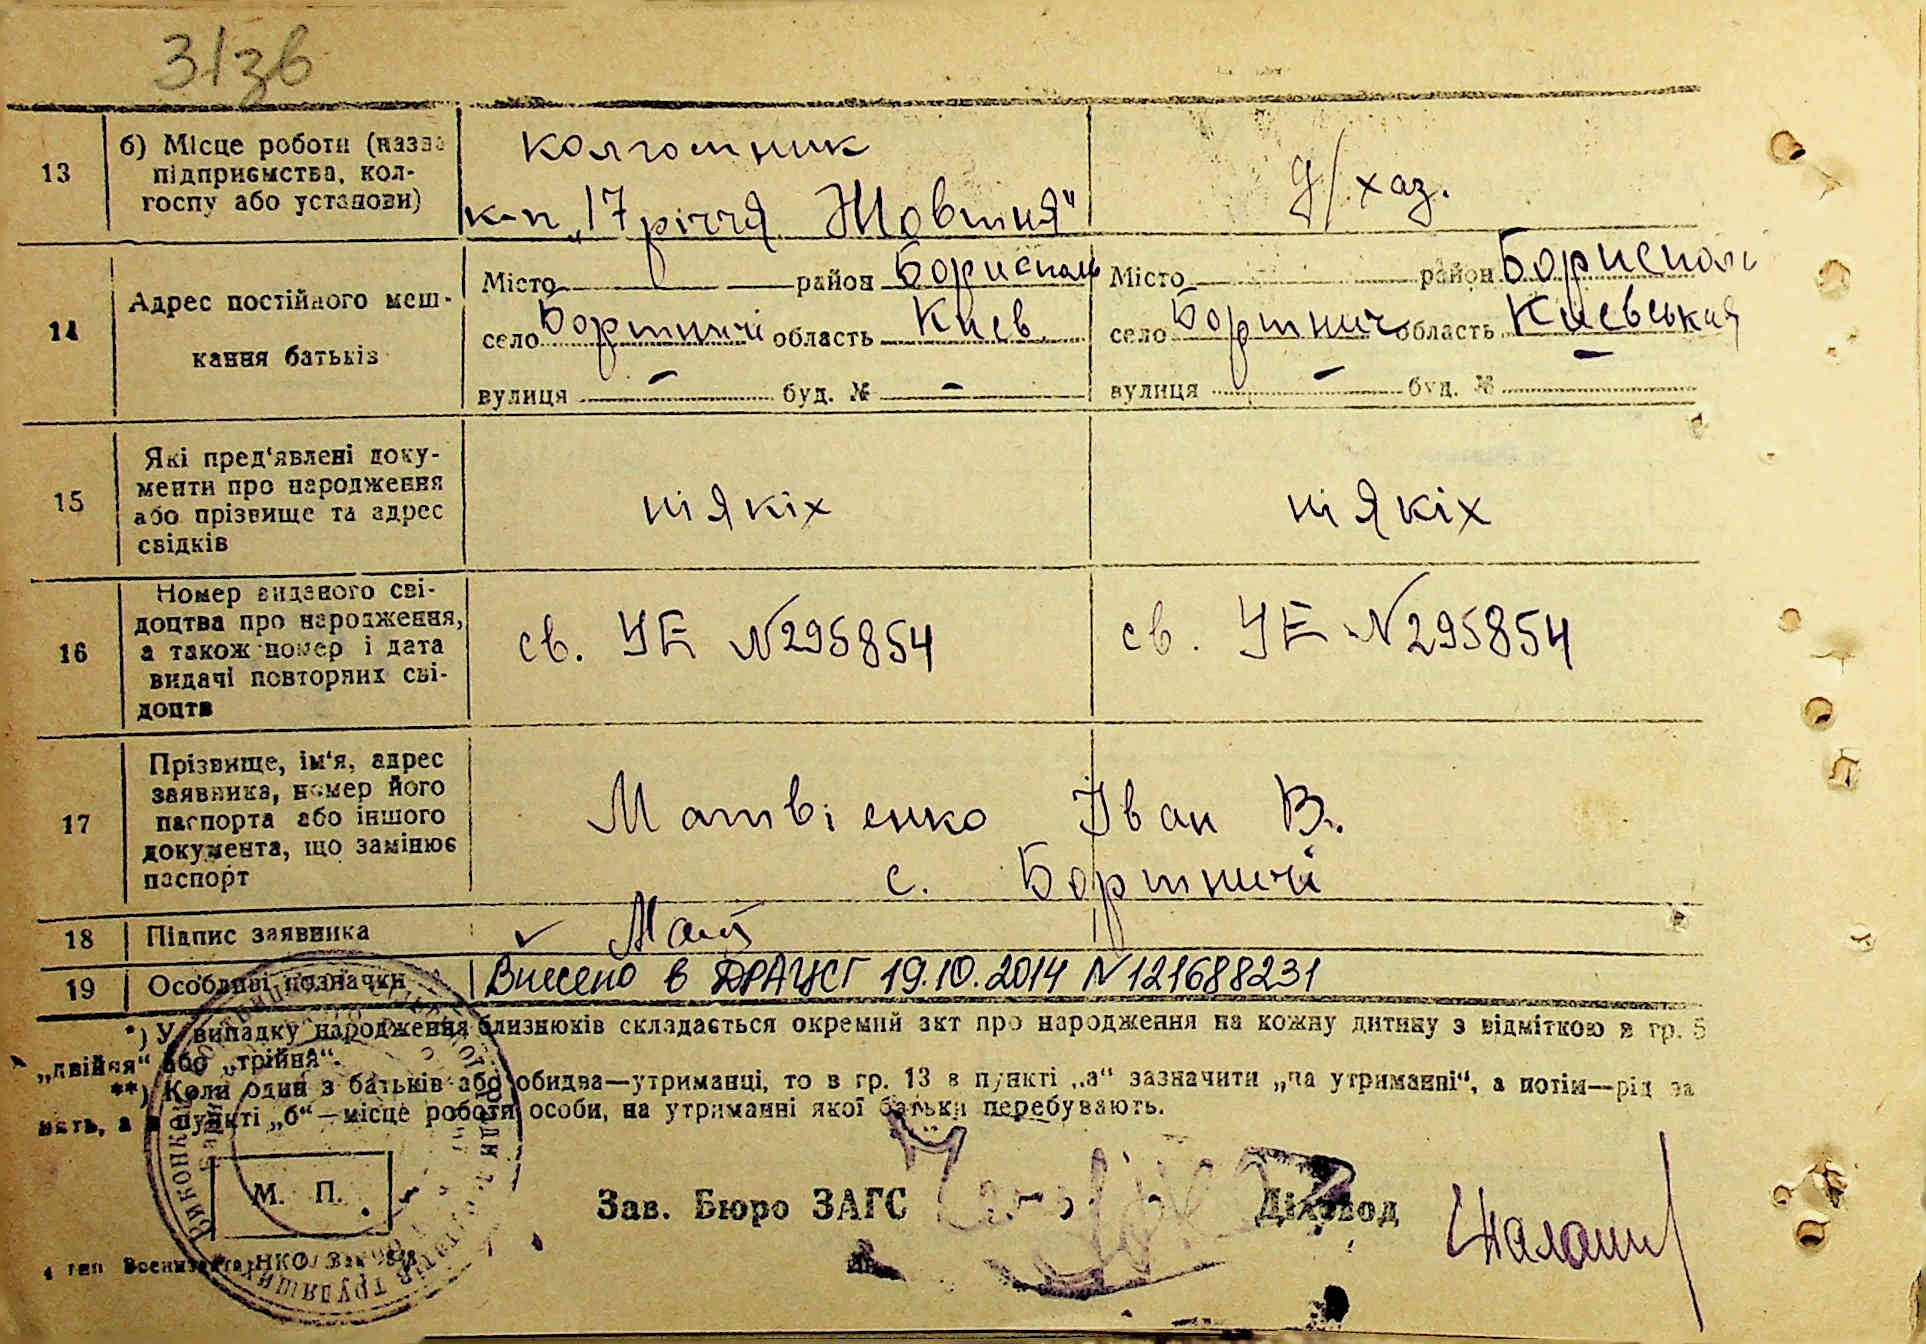 31зв
13
б) Місце роботи (назва
підприємства, кол-
госпу або установи)
колгошник
к-п „17 річчя Жовтня“
д/хаз.
14
Адрес постійного меш-
кання батьків
Місто район Бориспол
село Бортничі область Киев
вулиця – буд. № –
Місто район Борисполь
село Бортнич область Киевськая
вулиця – буд. № –
15
Які пред‘явлені доку-
менти про народження
або прізвище та адрес
свідків
ніякіх
ніякіх
16
Номер виданого сві-
доцтва про народження,
а також номер і дата
видачі повторних сві-
доцтв
св. УЕ №295854
св. УЕ №295854
17
Прізвище, ім‘я, адрес
заявника, номер його
паспорта або іншого
документа, що замінює
паспорт
Матвіенко Іван В.
с. Бортничі
18
Підпис заявника
✓ Мат
19
Особливі позначки
Внесено в ДРАЦСГ 19.10.2014 №121688231
*) У випадку народження близнюків складається окремий акт про народження на кожну дитину з відміткою в гр. 5
„двійня“ або „трійня“.
**) Коли один з батьків або обидва—утриманці, то в гр. 13 в пункті „а“ зазначити „на утриманні“, а потім—рід за
нять, а в пункті „б“—місце роботи особи, на утриманні якої батьки перебувають.
М. П.
Зав. Бюро ЗАГС
Діловод